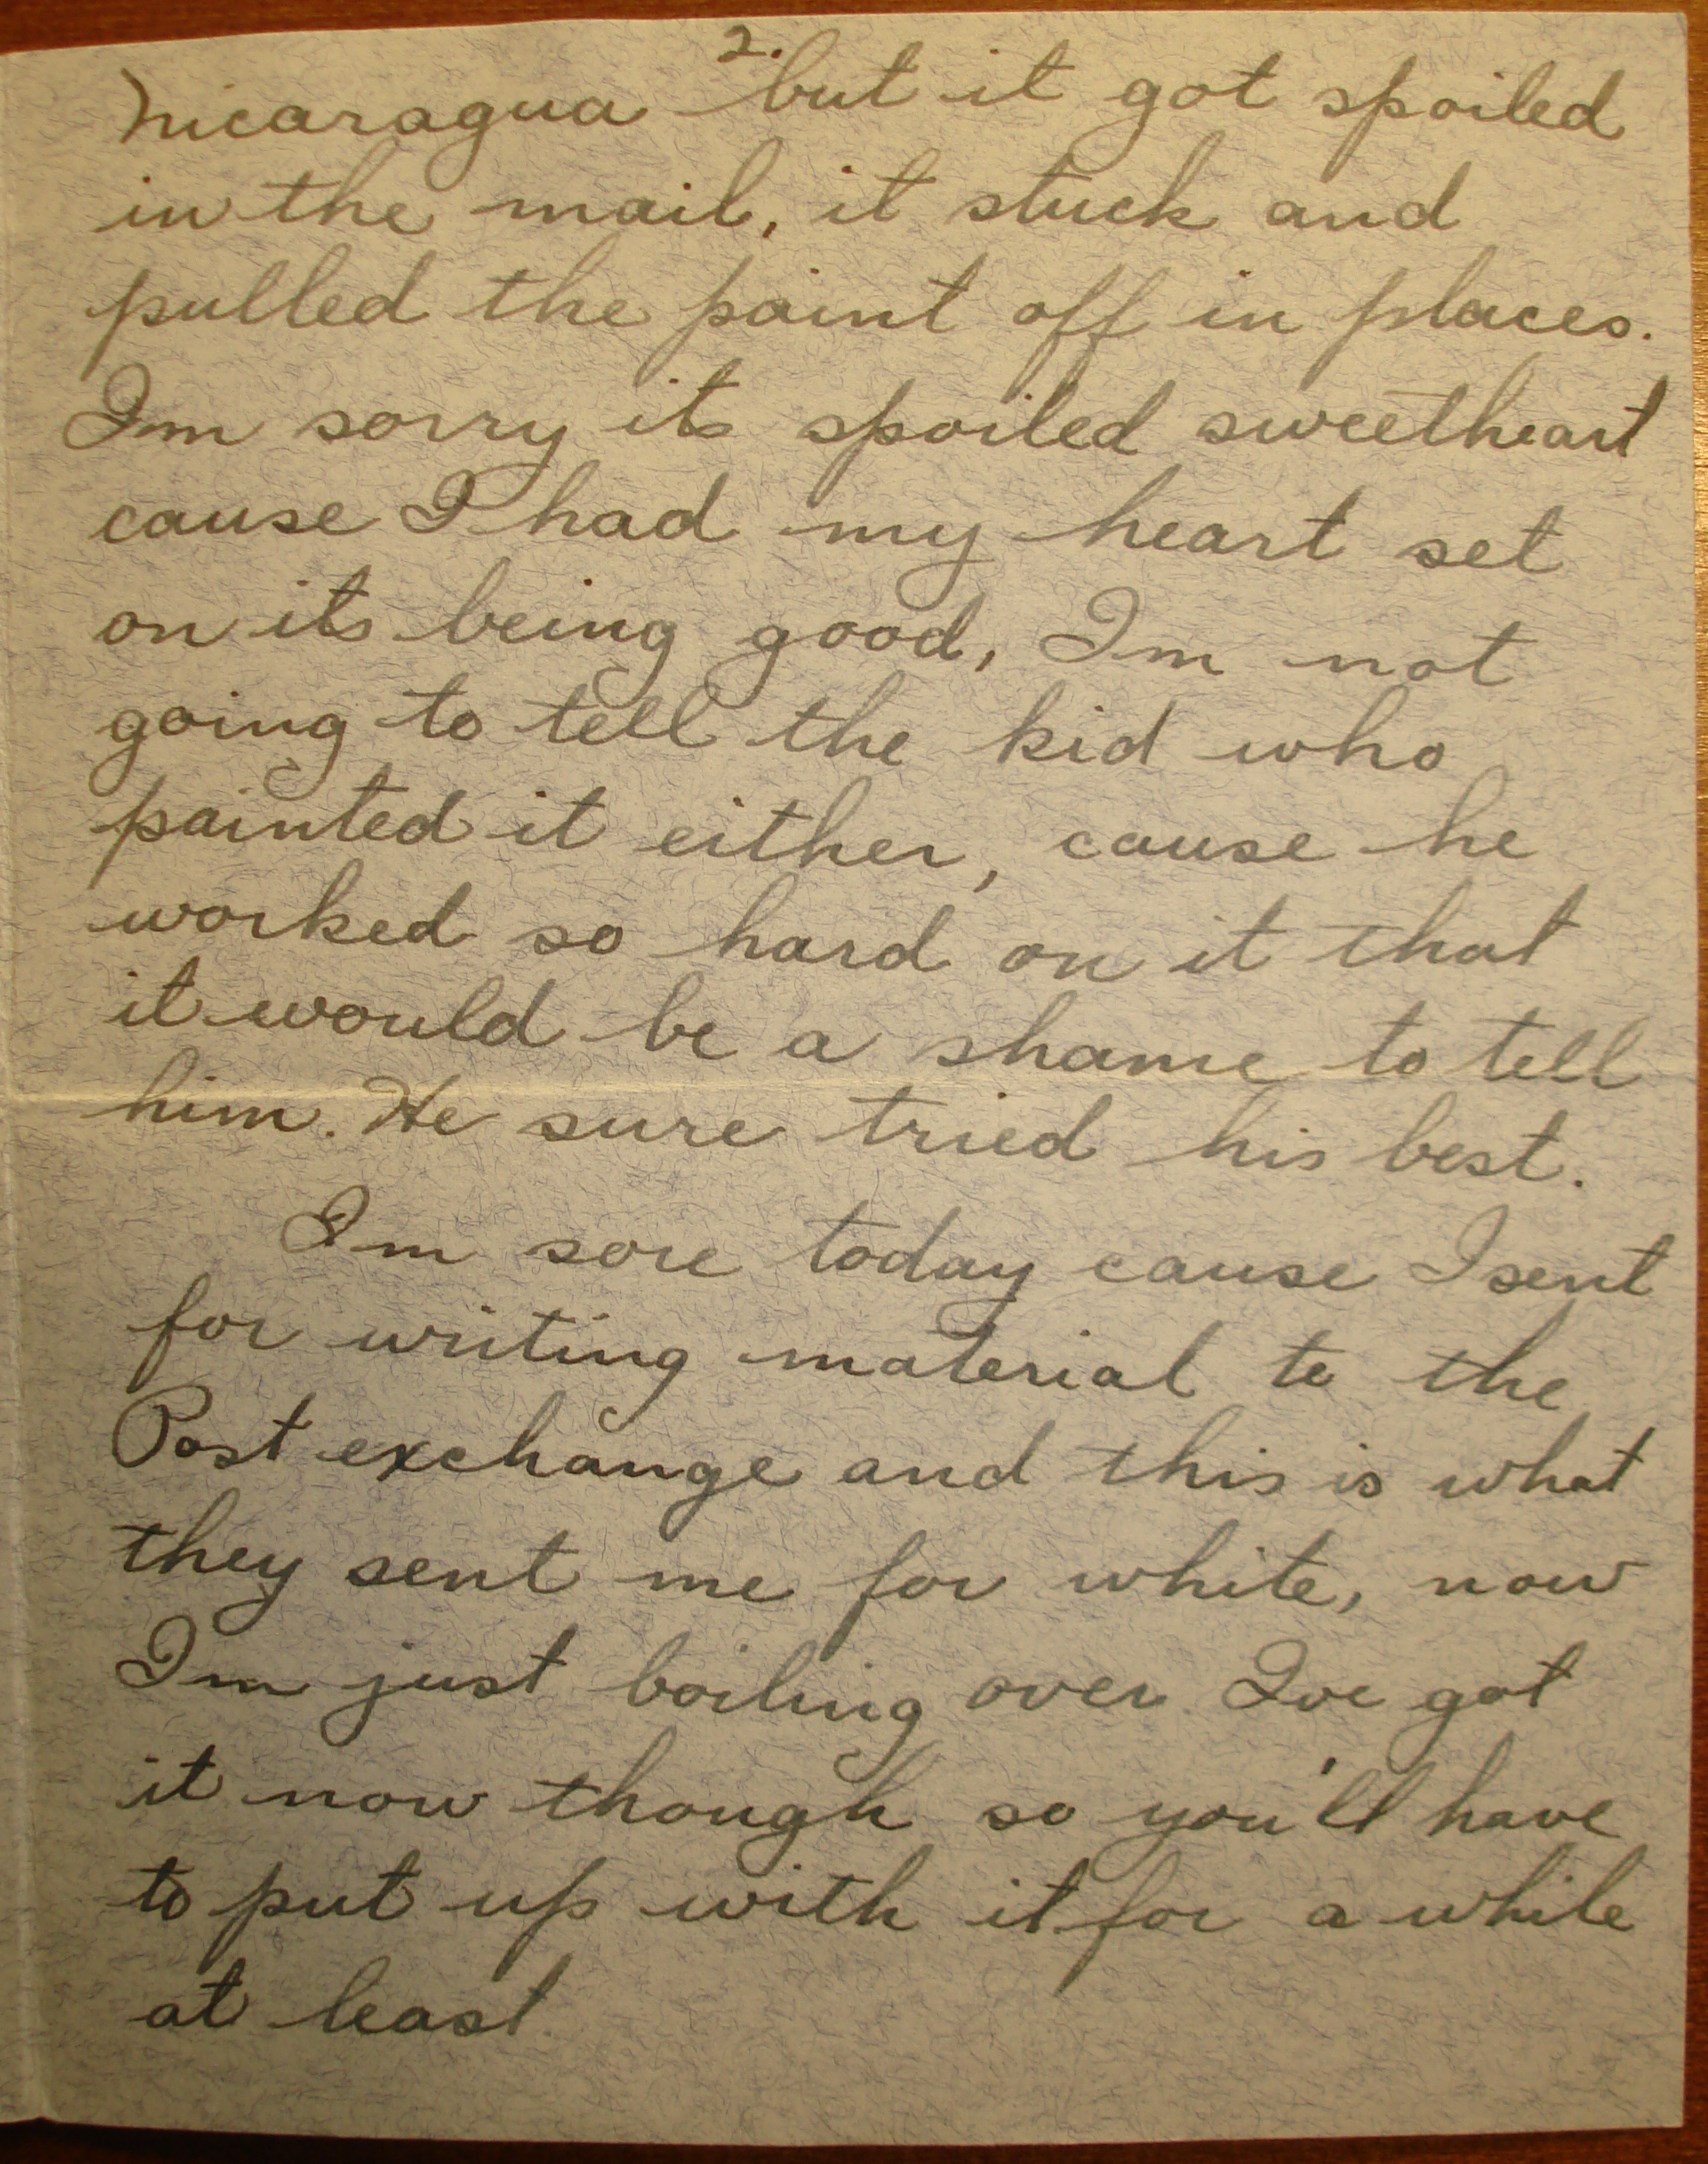 2.
Nicaragua but it got spoiled
in the mail, it stuck and
pulled the paint off in places.
Im sorry its spoiled sweetheart
cause I had my heart set
on its being good, Im not
going to tell the kid who
painted it either, cause he
worked so hard on it that
it would be a shame to tell
him. He sure tried his best.
Im sore today cause I sent
for writing material to the
Post exchange and this is what
they sent me for white, now
Im just boiling over. Ive got
it now though so you'll have
to put up with it for a while
at least.